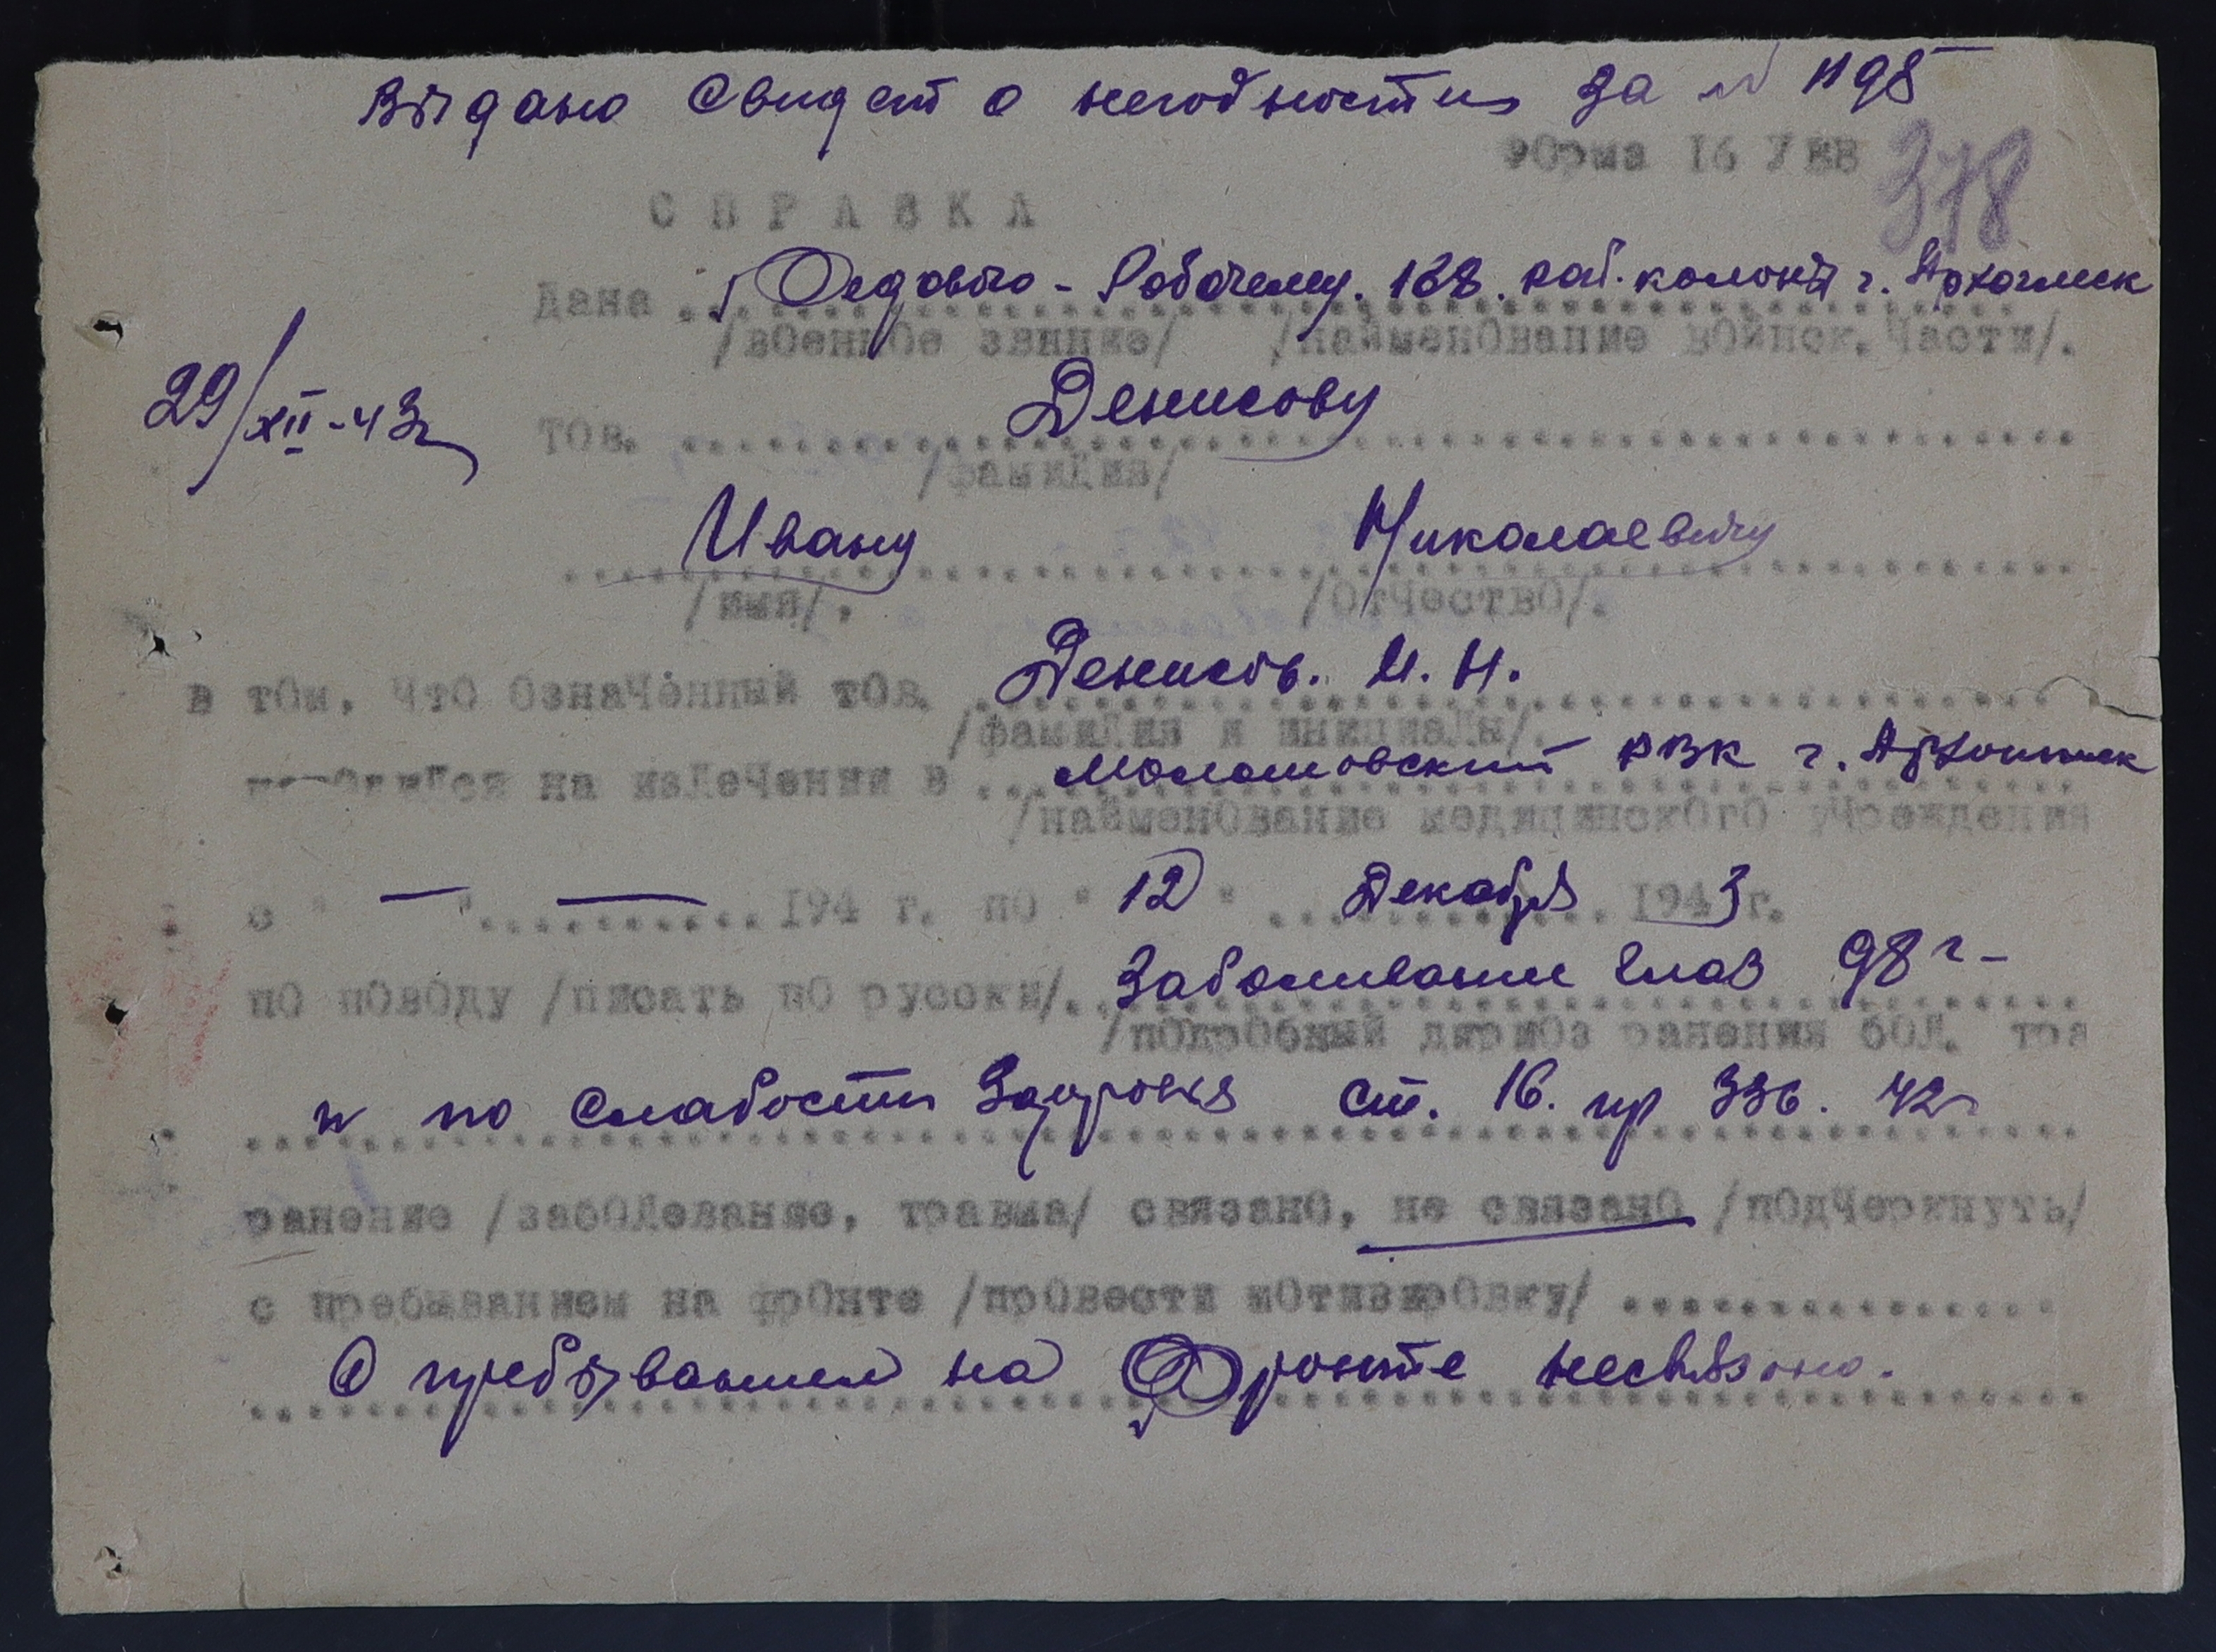 Выдано Свидет о негодности за № 1198
Форма 16 УВВ
378
СПРАВКА
Дана Рядовому - Рабочему. 188. раб. колоны г. Архангельск
/военное звание/ /наименование войнск. Части/.
29/XII-43г
тов. Денисову
/фамилия/
Ивану Николаевичу
/имя/. /отчество/.
в том, что означенный тов. Денисов. И. Н.
/фамилия и инициалы/.
находился на излечении в Молотовский РВК г. Архангельск
/наименование медицинского учреждения
с " — " — 194 г. по " 12 " Декабря 1943 г.
по поводу /писать по русски/. Заболивание глаз 98 г-
/подробный диагноз ранения бол. тра
и по слабости Здоровья ст. 16. пр 336. 42г
ранение /заболевание, травма/ связано, не связано /подчеркнуть/
с пребыванием на фронте /провести мотивировку/
С пребыванием на Фронте несвязано.